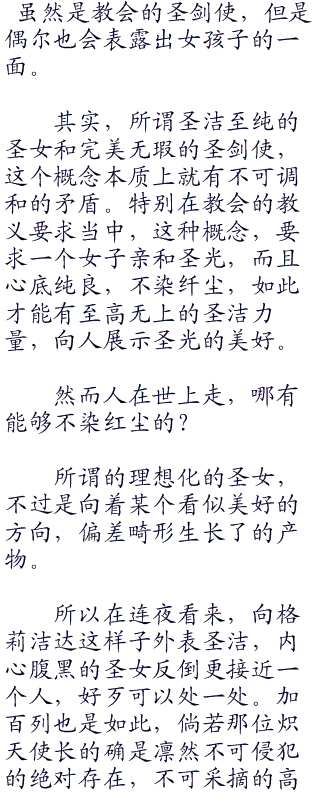 虽然是教会的圣剑使，但是
偶尔也会表露出女孩子的一
面。
其实，所谓圣洁至纯的
圣女和完美无瑕的圣剑使，
这个概念本质上就有不可调
和的矛盾。特别在教会的教
义要求当中，这种概念，要
求一个女子亲和圣光，而且
心底纯良，不染纤尘，如此
才能有至高无上的圣洁力
量，向人展示圣光的美好。
然而人在世上走，哪有
能够不染红尘的？
所谓的理想化的圣女，
不过是向着某个看似美好的
方向，偏差畸形生长了的产
物。
所以在连夜看来，向格
莉洁达这样子外表圣洁，内
心腹黑的圣女反倒更接近一
个人，好歹可以处一处。加
百列也是如此，倘若那位炽
天使长的确是凛然不可侵犯
的绝对存在，不可采摘的高